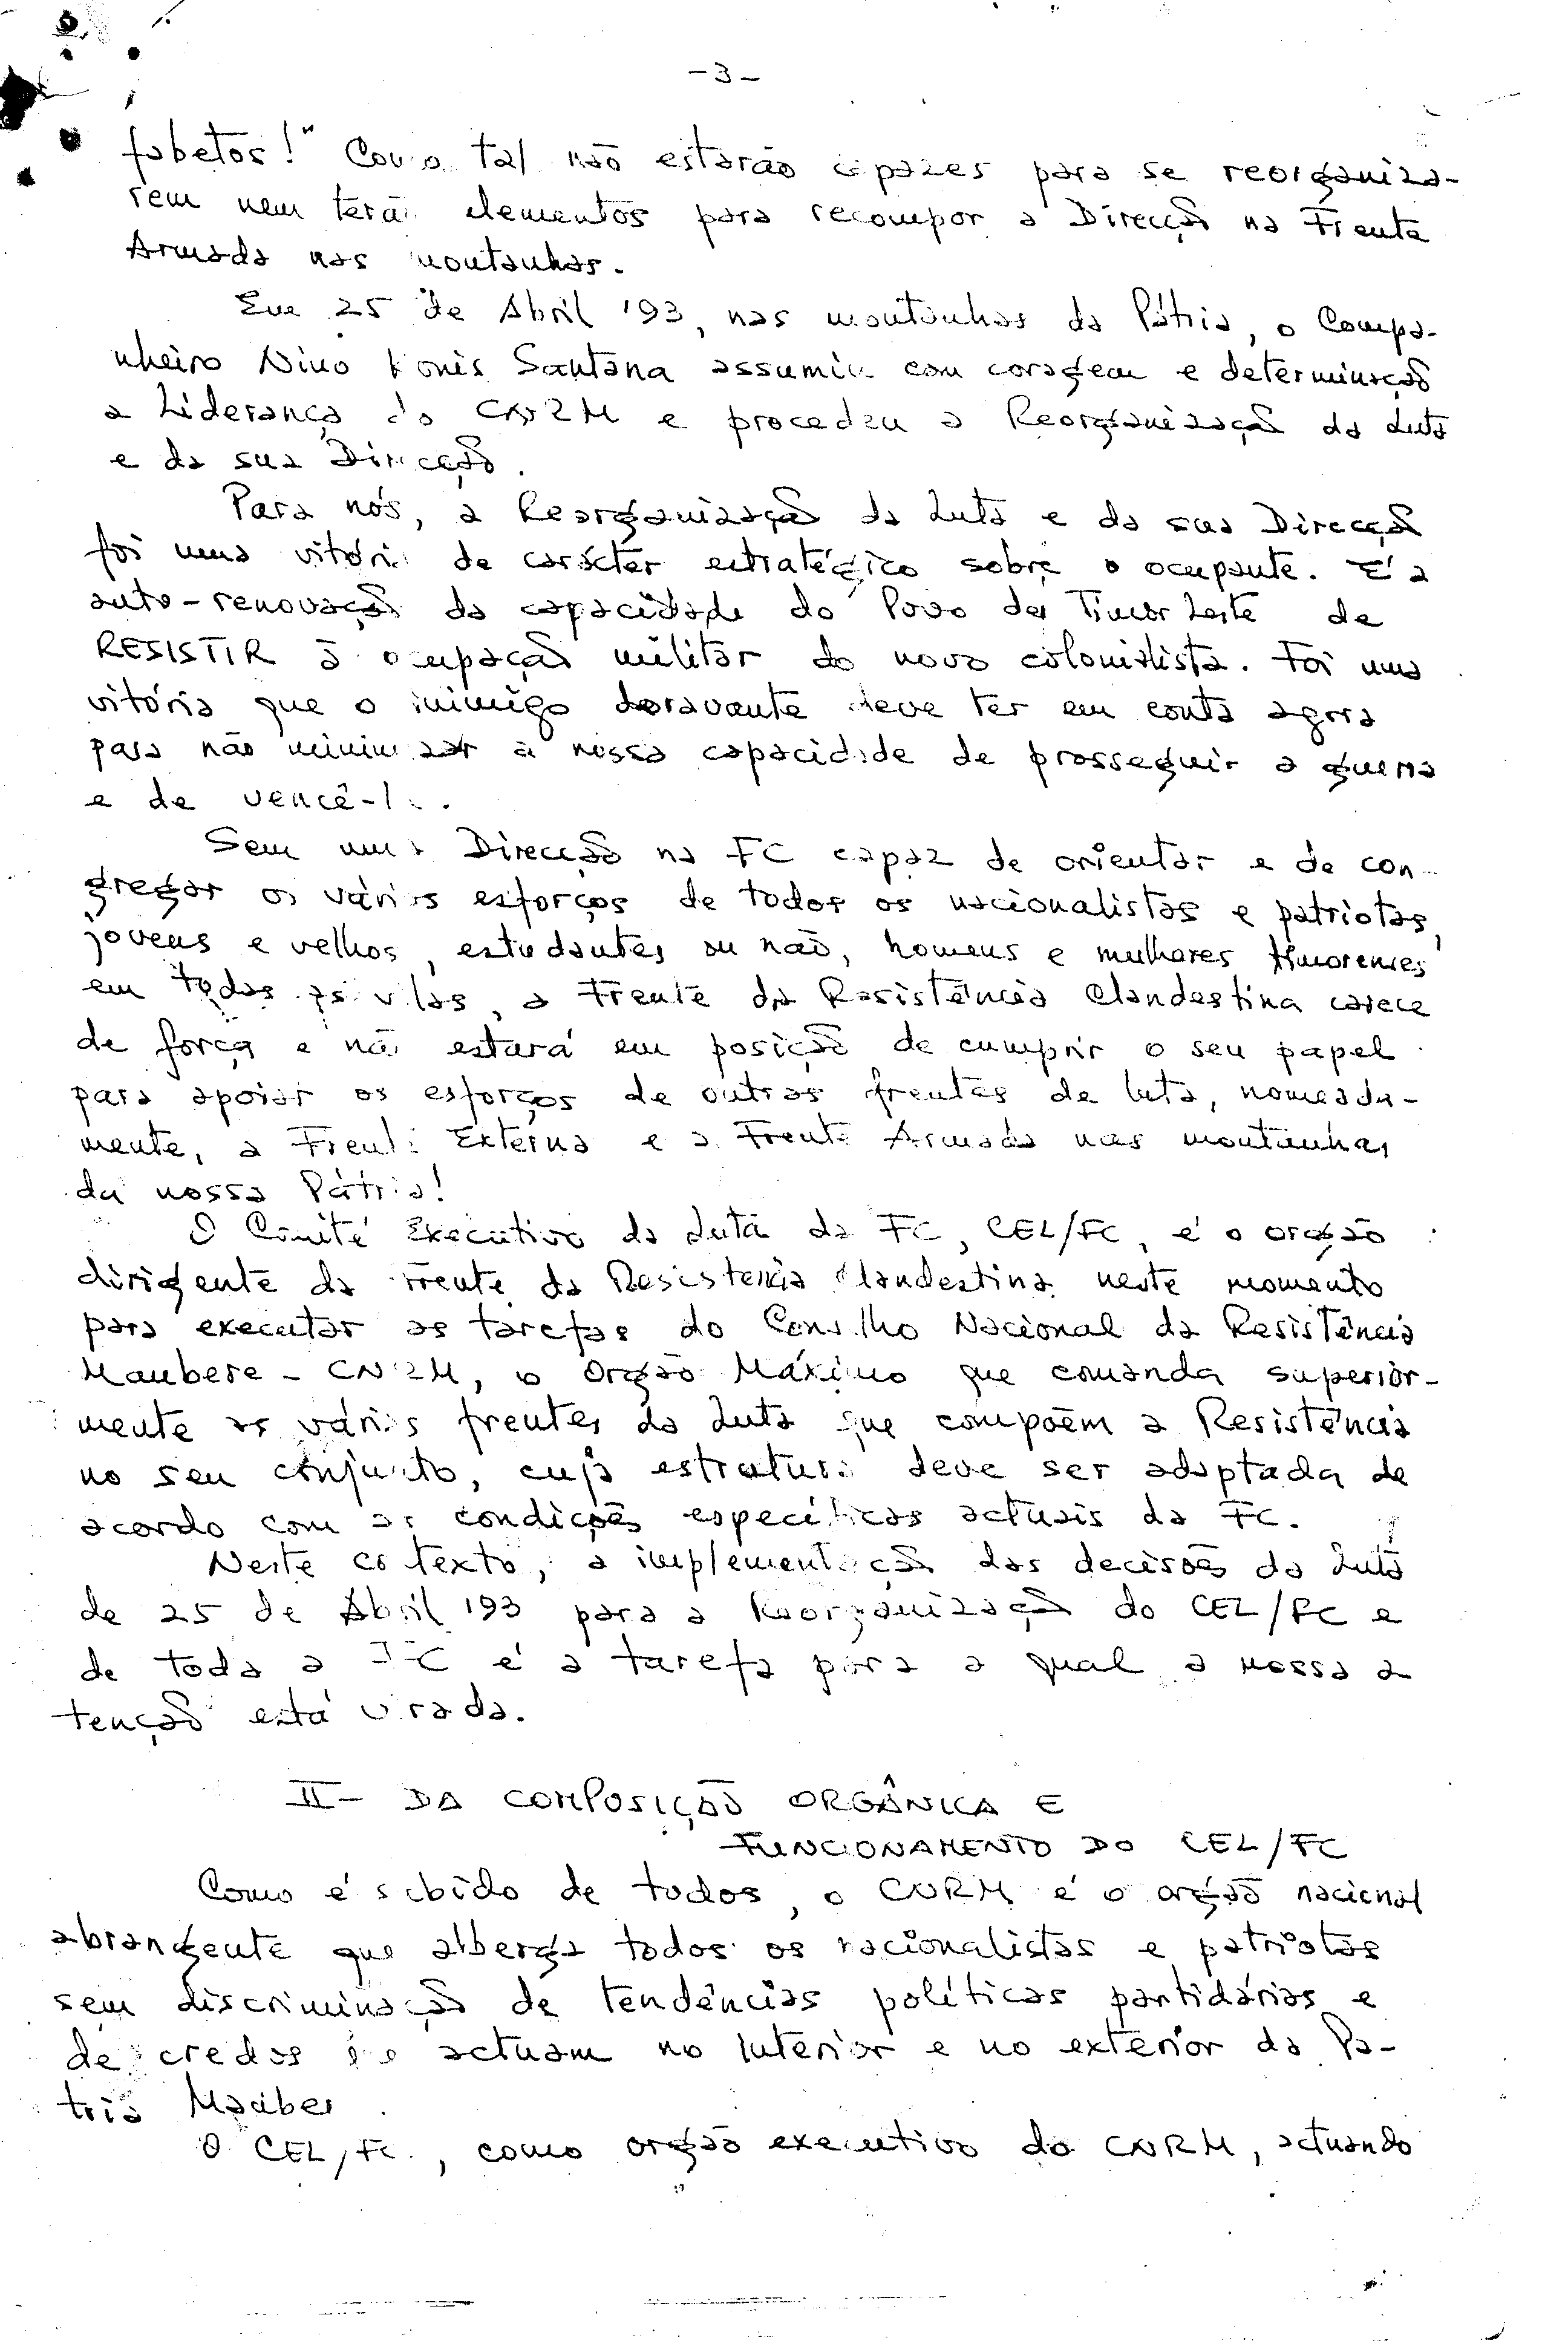 -3-
fabetos!" Como tal não estarão capazes para se reorganiza-
rem nem terão elementos para recompor a Direcção na Frente
Armada nas montanhas.
Em 25 de Abril '93, nas montanhas da Pátria, o Compa-
nheiro Nino Konis Santana assumiu com coragem e determinação
a Liderança do CNRM e procedeu a Reorganização da Luta
e da sua Direcção.
Para nós, a Reorganização da Luta e da sua Direcção
foi uma vitória de carácter estratégico sobre o ocupante. É a
auto-renovação da capacidade do Povo de Timor Leste de
RESISTIR à ocupação militar do novo colonialista. Foi uma
vitória que o inimigo doravante deve ter em conta agora
para não minimizar a nossa capacidade de prosseguir a guerra
e de vencê-la.
Sem uma Direcção na FC capaz de orientar e de con-
gregar os vários esforços de todos os nacionalistas e patriotas,
jovens e velhos, estudantes ou não, homens e mulheres timorenses
em todas as vilas, a Frente da Resistência Clandestina carece
de força e não estará em posição de cumprir o seu papel
para apoiar os esforços de outras frentes de luta, nomeada-
mente, a Frente Externa e a Frente Armada nas montanhas
da nossa Pátria!
O Comité Executivo da Luta da FC, CEL/FC, é o orgão
dirigente da Frente da Resistência Clandestina neste momento
para executar as tarefas do Conselho Nacional da Resistência
Maubere - CNRM, o Orgão Máximo que comanda superior-
mente as várias frentes da Luta que compoêm a Resistência
no seu conjunto, cuja estrutura deve ser adaptada de
acordo com as condições específicas actuais da FC.
Neste contexto, a implementação das decisões da Luta
de 25 de Abril '93 para a Reorganização do CEL/FC e
de toda a FC é a tarefa para a qual a nossa a
tenção está virada.
II - DA COMPOSIÇÃO ORGÂNICA E
FUNCIONAMENTO DO CEL/FC
Como é sabido de todos, o CNRM é o orgão nacional
abrangente que alberga todos os nacionalistas e patriotas
sem discriminação de tendências políticas partidárias e
de credos actuam no Interior e no exterior da Pa-
tria
O CEL/FC, como orgão executivo do CNRM, actuando